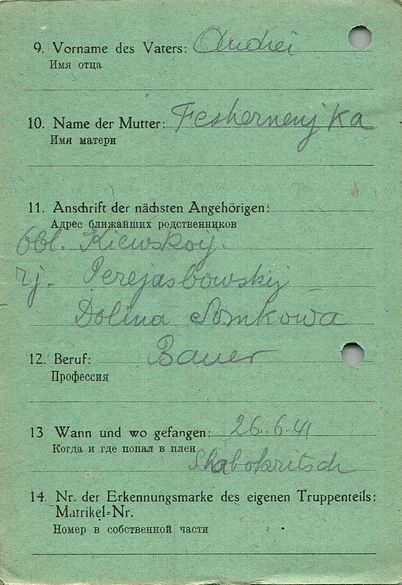 9. Vorname des Vaters: Andrei
Имя отца
10. Name der Mutter: Feshernenjka
Имя матери
11. Anschrift der nächsten Angehörigen:
Адрес ближайших родственников
Obl. Kiewskoij.
rj. Perejasbowskij
Dolina Somkowa
12. Beruf: Bauer
Профессия
13 Wann und wo gefangen: 26.6.41
Когда и где попал в плен
14. Nr. der Erkennungsmarke des eigenen Truppenteils:
Matrikel-Nr.
Номер в собственной части